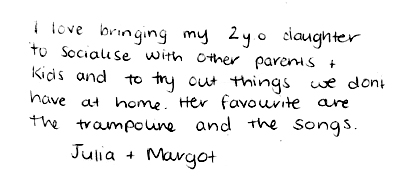 I love bringing my 2y.o daughter
to socialise with other parents +
kids and to try out things we dont
have at home. Her favourite are
the trampoline and the songs.
Julia + Margot